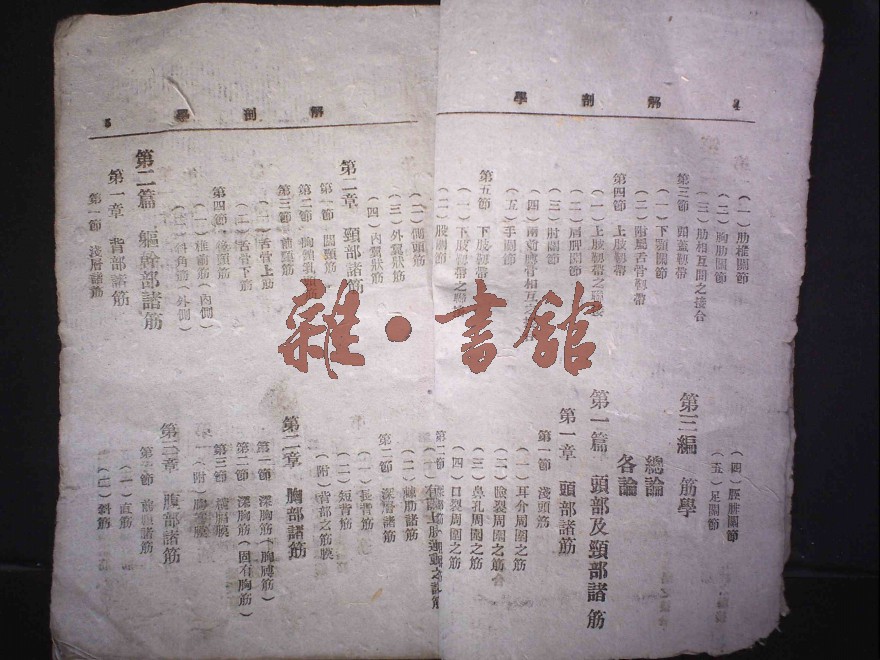 解剖學
4
(一) 肋椎關節
(二) 胸肋關節
(三) 肋相互間之連合
第三節 頭蓋靱帶
(一) 下顎關節
(二) 附屬舌骨靱帶
第四節 上肢靱帶
(一) 上肢靱帶之
(二) 肩胛關節
(三) 肘關節
(四) 兩前膊骨相互之
(五) 手關節
第五節 下肢靱帶
(一) 下肢靱帶之
(二) 股關節
(四) 脛腓關節
(五) 足關節
第三編 筋學
總論
各論
第一篇 頭部及頸部諸筋
第一章 頭部諸筋
第一節 淺頭筋
(一) 耳介周圍之筋
(二) 瞼裂周圍之筋
(三) 鼻孔周圍之筋
(四) 口裂周圍之筋
第二節
解剖學
5
(二) 顳頭筋
(三) 外翼狀筋
(四) 內翼狀筋
第二章 頸部諸筋
第一節 闊頸筋
第二節 胸鎖乳
第三節 前頸筋
(一) 舌骨上筋
(二) 舌骨下筋
第四節 後頸筋
(一) 椎前筋(內側)
(二) 斜角筋(外側)
第二篇 軀幹部諸筋
第一章 背部諸筋
第一節 淺層諸筋
(二) 肋諸筋
第二節 深層諸筋
(一) 長背筋
(二) 短背筋
(附) 背部之筋膜
第二章 胸部諸筋
第一節 淺胸筋(胸膊筋)
第二節 深胸筋(固有胸筋)
第三節 橫膈膜
(附) 胸
第三章 腹部諸筋
第一節 諸筋
(一) 直筋
(二) 斜筋
雜·書舘